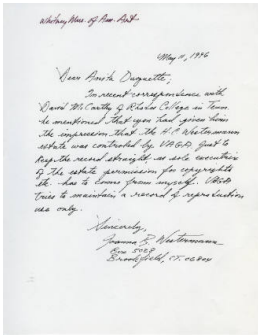 Whitney Mus. of Am. Art
May 11, 1996
Dear Anita Duquette:
In recent correspondence with
David McCarthy of Rhodes College in Tenn.
he mentioned that you had given him
the impression that the H.C. Westermann
estate was controled by VAGA. Just to
keep the record straight, as sole executrix
of the estate permission for copyrights
etc. has to come from myself. VAGA
tries to maintain a record of reproduction
use only.
Sincerely,
Joanna B. Westermann
Box 5028
Brookfield, CT. 06804